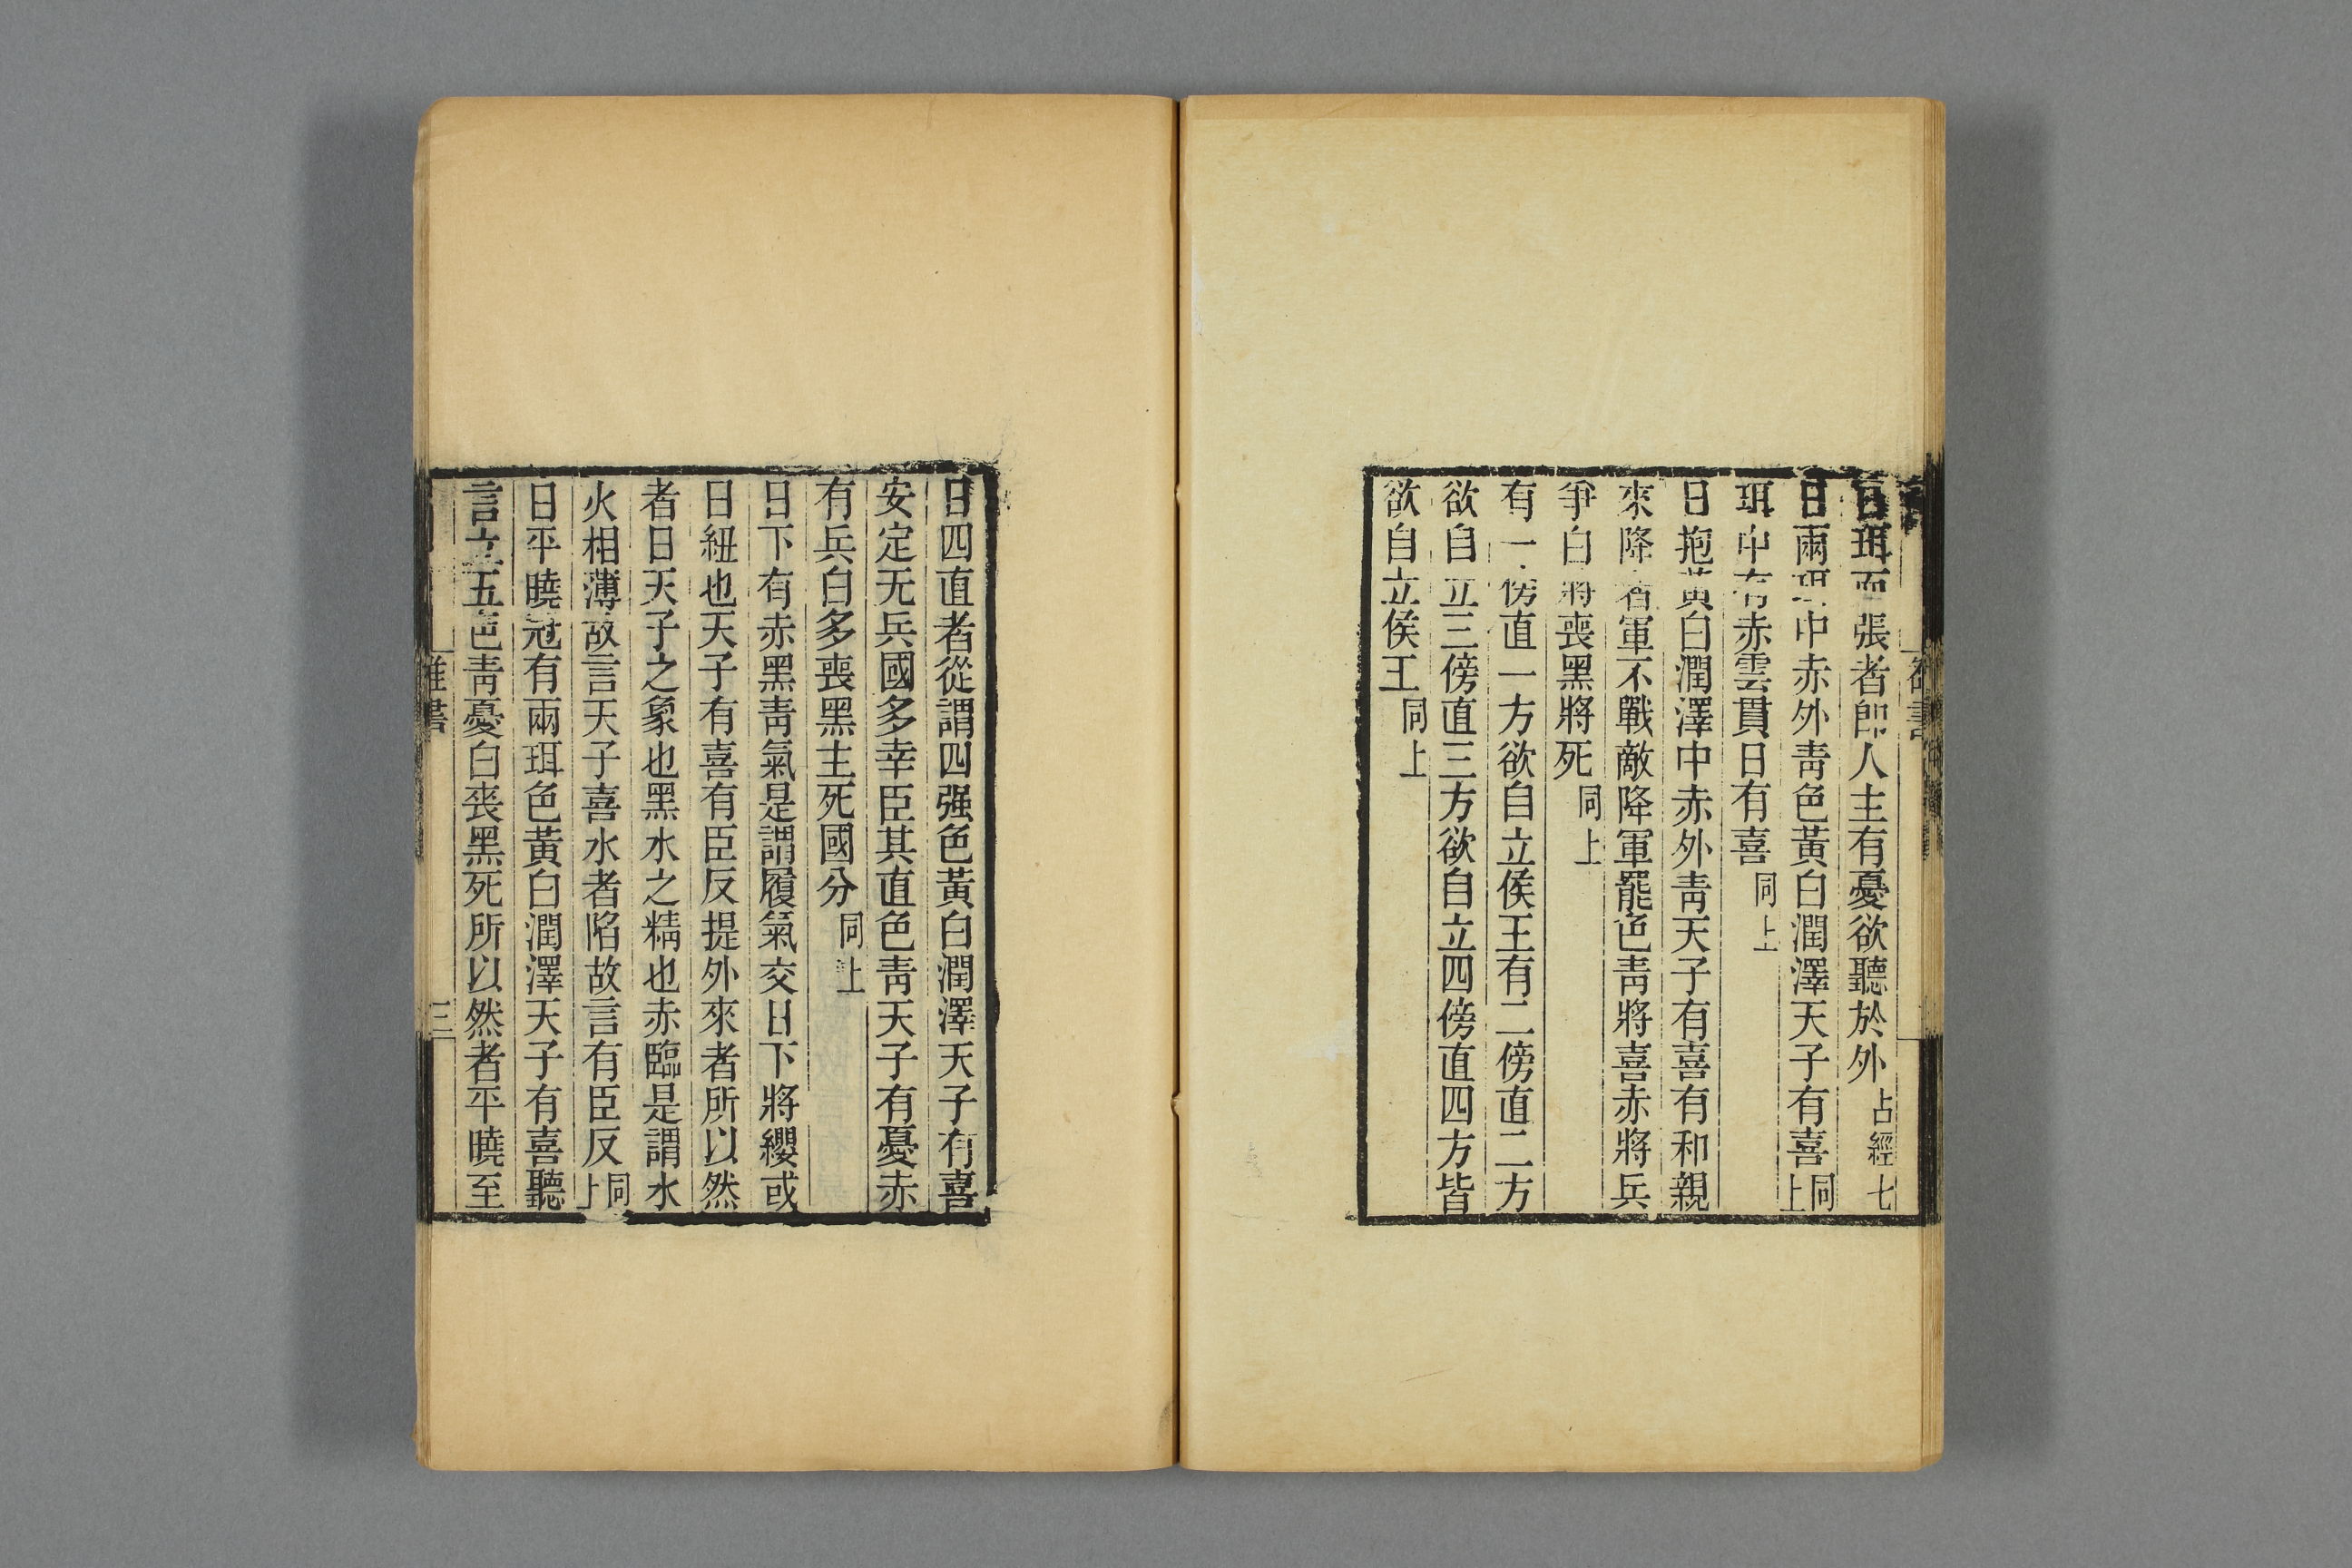 日珥而張者卽人主有憂欲聽於外占經七
日兩珥中赤外靑色黃白潤澤天子有喜同上
珥中有赤雲貫日有喜同上
日抱黃白潤澤中赤外靑天子有喜有和親
來降者軍不戰敵降軍罷色靑將喜赤將兵
爭白將喪黑將死同上
有一傍直一方欲自立侯王有二傍直二方
欲自立三傍直三方欲自立四傍直四方皆
欲自立侯王同上
日四直者從謂四强色黃白潤澤天子有喜
安定无兵國多幸臣其直色靑天子有憂赤
有兵白多喪黑主死國分同上
日下有赤黑靑氣是謂履氣交日下將纓或
日紐也天子有喜有臣反提外來者所以然
者日天子之象也黑水之精也赤臨是謂水
火相薄故言天子喜水者陷故言有臣反同上
日平曉冠有兩珥色黃白潤澤天子有喜聽
言立五色靑憂白喪黑死所以然者平曉至
雒書
三